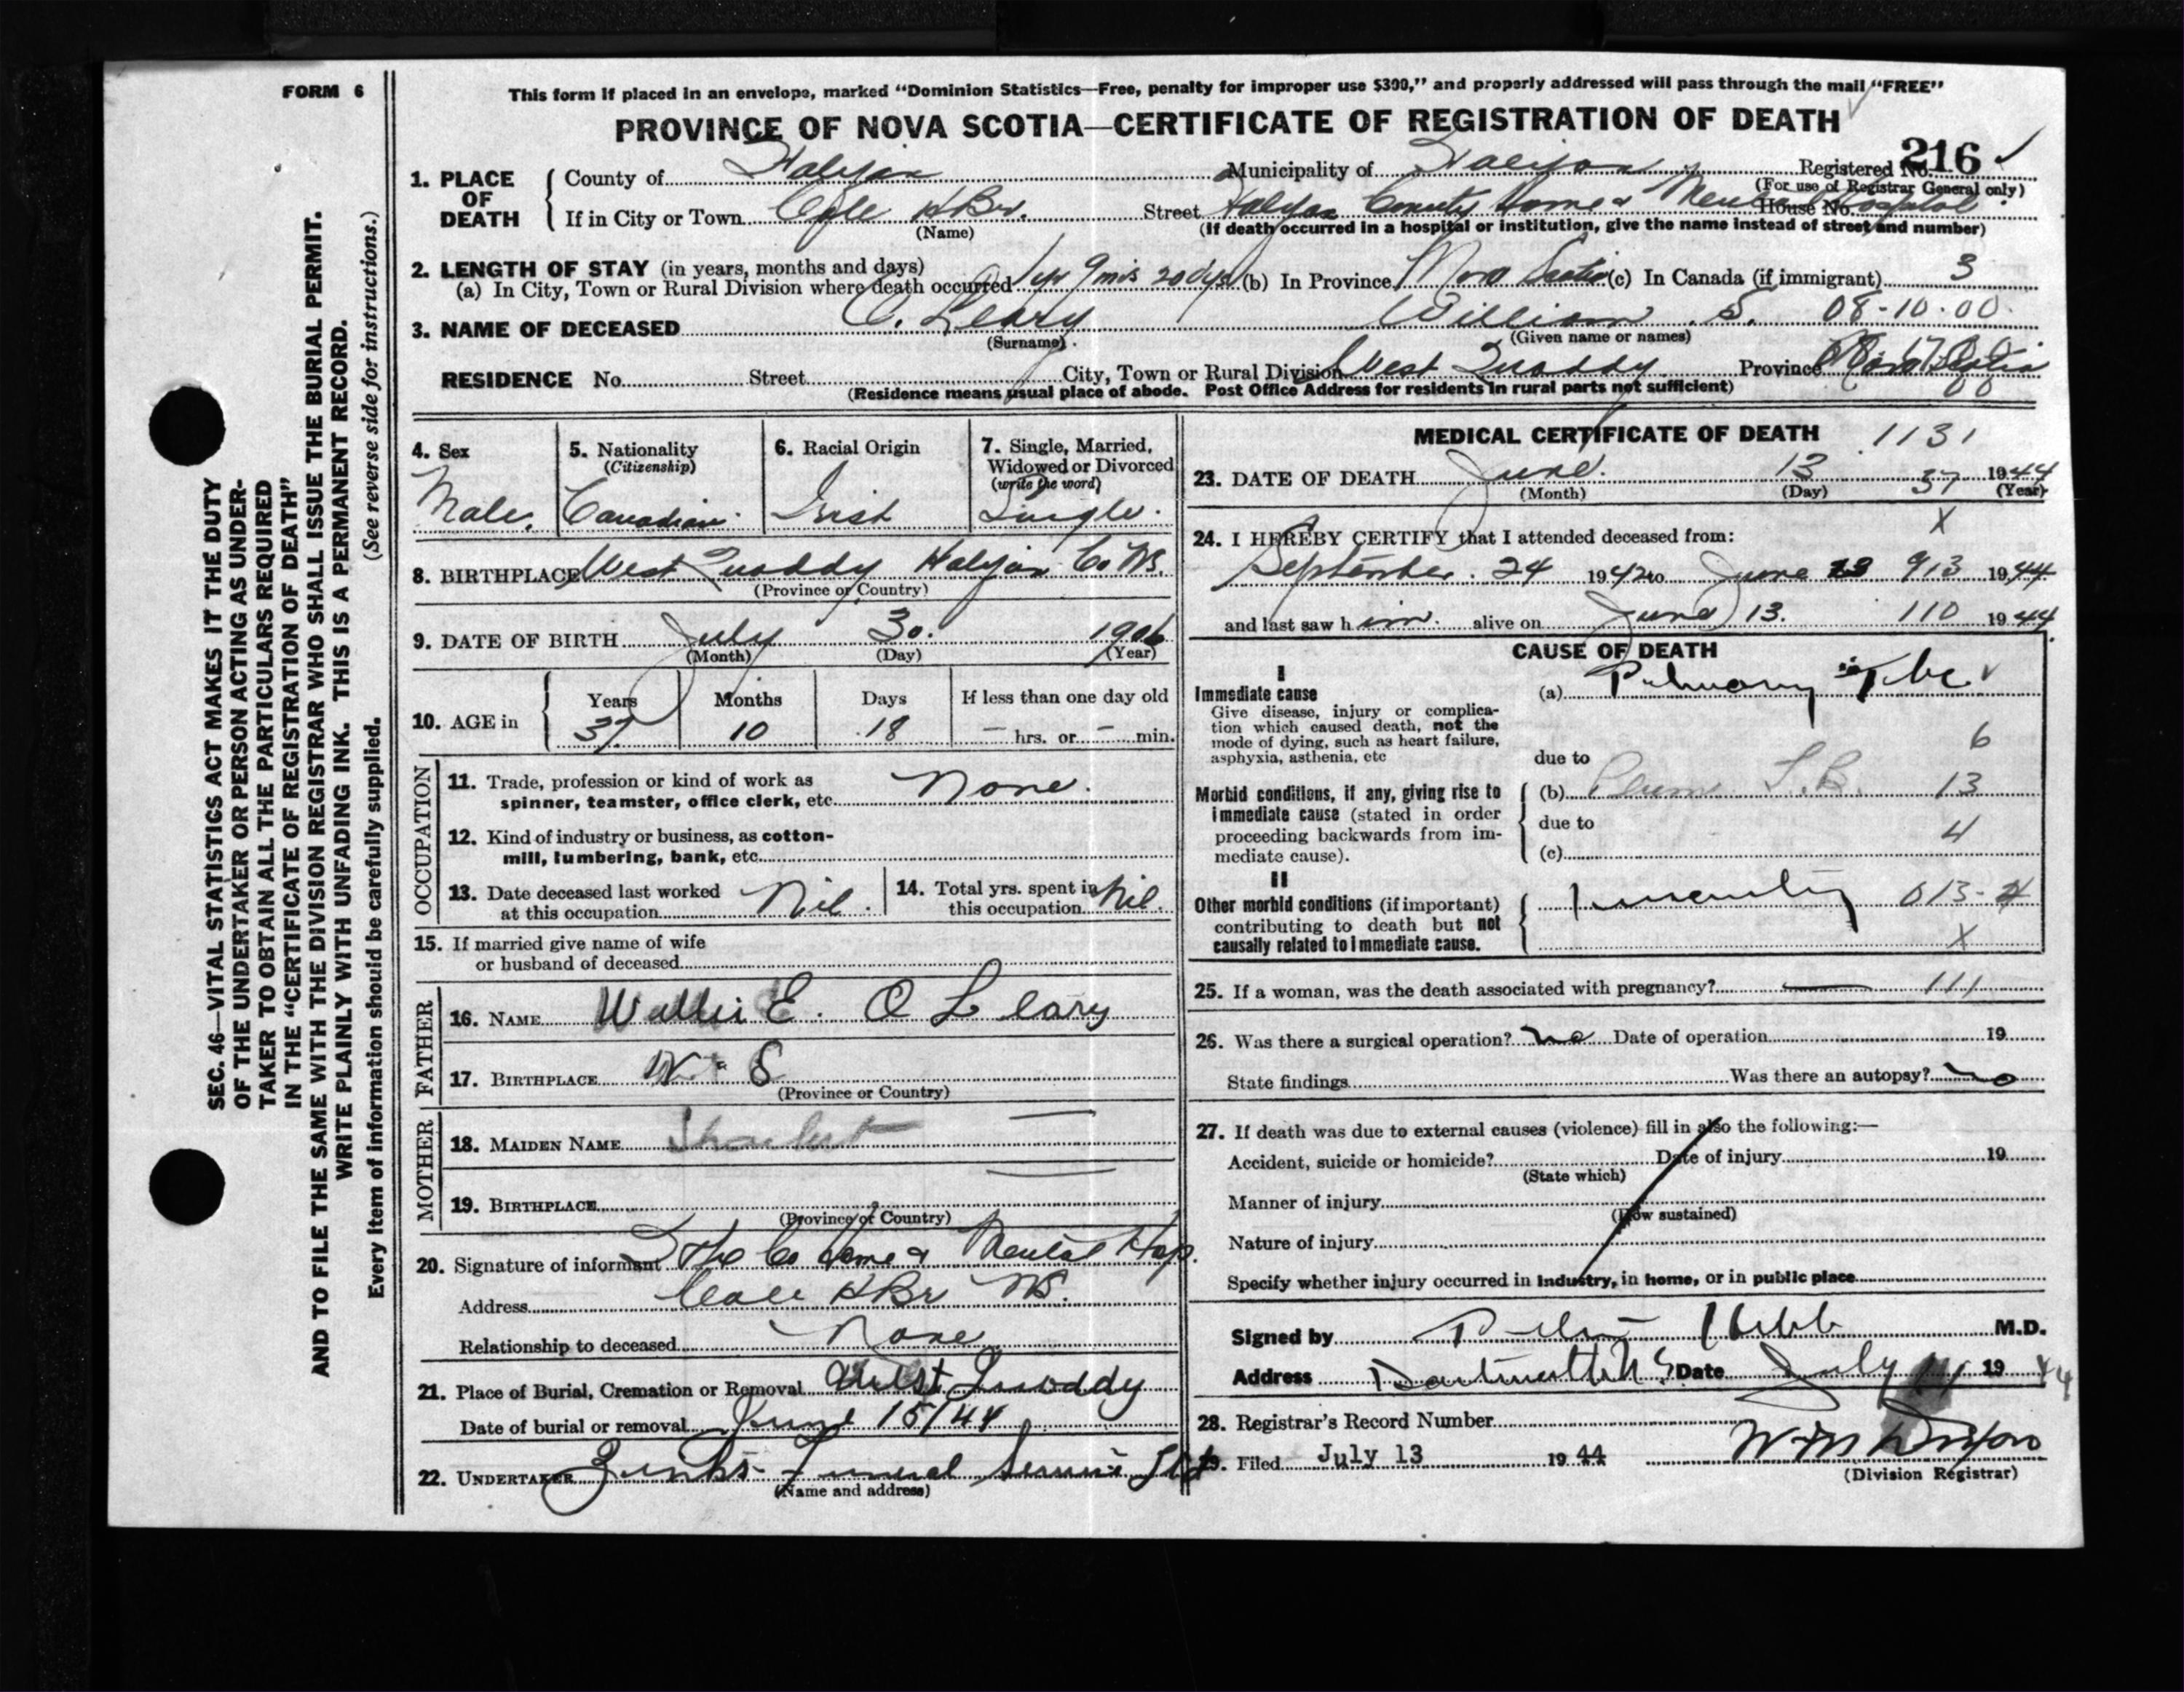 FORM 6
This form if placed in an envelope, marked "Dominion Statistics—Free, penalty for improper use $300," and properly addressed will pass through the mail "FREE"
PROVINCE OF NOVA SCOTIA—CERTIFICATE OF REGISTRATION OF DEATH
216
1. PLACE OF DEATH
County of Halifax Municipality of Halifax Registered No.
(For use of Registrar General only)
If in City or Town Cole HBr. Street Halifax County Home & Mental Hospital House No.
(Name) (If death occurred in a hospital or institution, give the name instead of street and number)
2. LENGTH OF STAY (in years, months and days)
(a) In City, Town or Rural Division where death occurred 1 yr 9 mos 20 dys (b) In Province Nova Scotia (c) In Canada (if immigrant) 3
3. NAME OF DECEASED O. Leary William S. 08-10-00
(Surname) (Given name or names)
RESIDENCE No. Street City, Town or Rural Division West Quoddy Province Nova Scotia
(Residence means usual place of abode. Post Office Address for residents in rural parts not sufficient) 00
4. Sex
Male.
5. Nationality
(Citizenship)
Canadian
6. Racial Origin
Irish
7. Single, Married, Widowed or Divorced
(write the word)
Single.
8. BIRTHPLACE West Quoddy Halifax Co NS.
(Province or Country)
9. DATE OF BIRTH July 30. 1906
(Month) (Day) (Year)
10. AGE in
Years Months Days If less than one day old
37 10 18 – hrs. or – min.
OCCUPATION
11. Trade, profession or kind of work as
spinner, teamster, office clerk, etc. None.
12. Kind of industry or business, as cotton-
mill, lumbering, bank, etc.
13. Date deceased last worked
at this occupation Nil.
14. Total yrs. spent in
this occupation Nil.
15. If married give name of wife
or husband of deceased
FATHER
16. NAME Wallie E. O Leary
17. BIRTHPLACE N. S
(Province or Country)
MOTHER
18. MAIDEN NAME
19. BIRTHPLACE
(Province or Country)
20. Signature of informant Co Home & Mental Hosp.
Address Cole HBr NS.
Relationship to deceased None
21. Place of Burial, Cremation or Removal West Quoddy
Date of burial or removal June 15/44
22. UNDERTAKER Zinks Funeral Service Ltd
(Name and address)
MEDICAL CERTIFICATE OF DEATH 1131
23. DATE OF DEATH June. 13 37 1944
(Month) (Day) (Year)
X
24. I HEREBY CERTIFY that I attended deceased from:
September. 24 1942 to June 13 913 1944
and last saw him. alive on June 13. 110 1944
CAUSE OF DEATH
I
Immediate cause
Give disease, injury or complica-
tion which caused death, not the
mode of dying, such as heart failure,
asphyxia, asthenia, etc
(a) Pulmonary Tbc
6
due to
Morbid conditions, if any, giving rise to
immediate cause (stated in order
proceeding backwards from im-
mediate cause).
(b) T.B. 13
due to 4
(c)
II
Other morbid conditions (if important)
contributing to death but not
causally related to immediate cause.
Insanity 013-4
X
25. If a woman, was the death associated with pregnancy? — 111
26. Was there a surgical operation? no Date of operation 19
State findings Was there an autopsy? no
27. If death was due to external causes (violence) fill in also the following:—
Accident, suicide or homicide? Date of injury 19
(State which)
Manner of injury
(How sustained)
Nature of injury
Specify whether injury occurred in industry, in home, or in public place
Signed by Hebb M.D.
Address Dartmouth N S Date July 1944
28. Registrar's Record Number
29. Filed July 13 1944
(Division Registrar)
SEC. 46—VITAL STATISTICS ACT MAKES IT THE DUTY
OF THE UNDERTAKER OR PERSON ACTING AS UNDER-
TAKER TO OBTAIN ALL THE PARTICULARS REQUIRED
IN THE "CERTIFICATE OF REGISTRATION OF DEATH"
AND TO FILE THE SAME WITH THE DIVISION REGISTRAR WHO SHALL ISSUE THE BURIAL PERMIT.
WRITE PLAINLY WITH UNFADING INK. THIS IS A PERMANENT RECORD.
Every item of information should be carefully supplied. (See reverse side for instructions.)